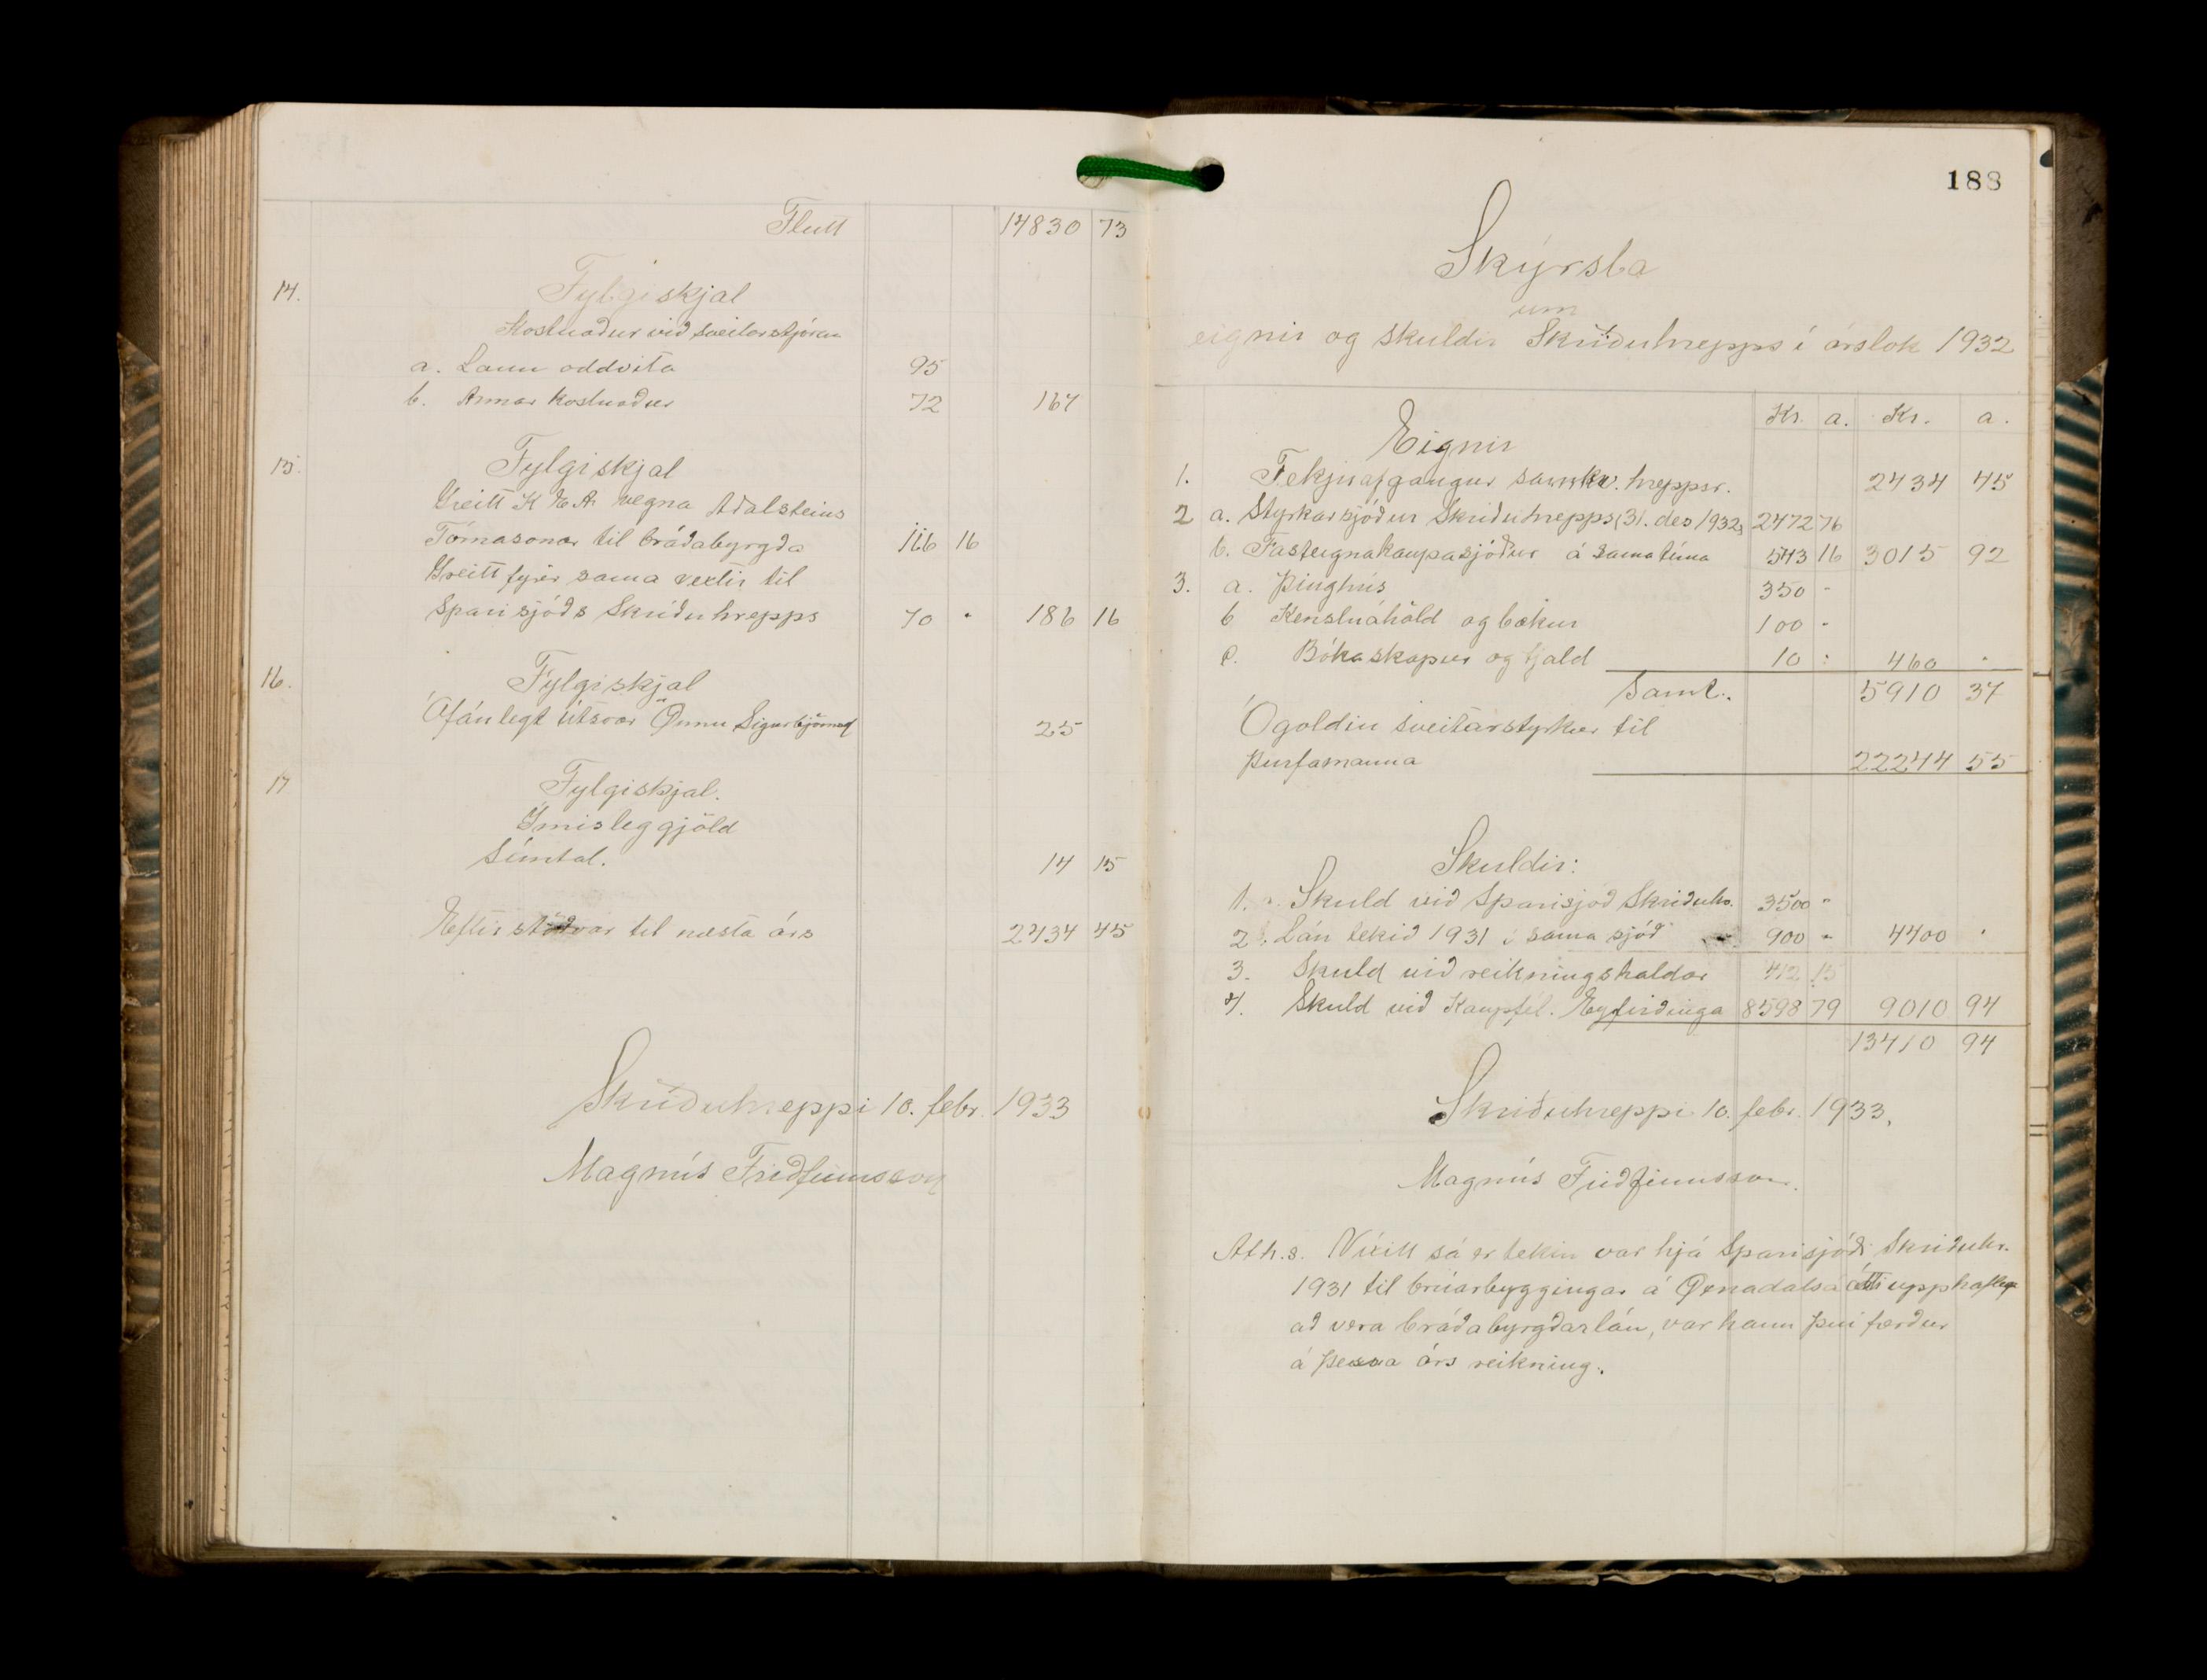 Flutt 14830 73
14. Fylgiskjal
Kostnaður við sveitarstjórn
a. Laun oddvita 95
b. Annar kostnaður 72 167
15. Fylgiskjal
Greitt K E A vegna Aðalsteins
Tómasonar til bráðabyrgða 116 16
Greitt fyrir sama vextir til
Sparisjóðs Skriðuhrepps 70 " 186 16
16. Fylgiskjal
Ófánlegt útsvar Önnu Sigurbjörnsd 25
17 Fylgiskjal.
Ýmisleg gjöld
Símtal. 14 15
Eftirstöðvar til næsta árs 2434 45
Skriðuhreppi 10. febr. 1933
Magnús Friðfinnsson
188
Skýrsla
um
eignir og skuldir Skriðuhrepps í árslok 1932
Kr. a. Kr. a.
Eignir
1. Tekjuafgangur samkv. hreppsr. 2434 45
2 a. Styrkarsjóður Skriðuhrepps (31. des 1932) 2472 76
b. Fasteignakaupasjóður á sama tíma 543 16 3015 92
3. a. Þinghús 350 -
b Kensluáhöld og bækur 100 -
c. Bókaskápur og tjald 10 : 460 "
Samt. 5910 37
Ógoldin sveitarstyrkur til
þurfamanna 22244 55
Skuldir:
1. Skuld við Sparisjóð Skriðuhr. 3500 "
2. Lán tekið 1931 í sama sjóð 900 " 4400 "
3. Skuld við reikningshaldar 412 15
4. Skuld við Kaupfél. Eyfirðinga 8598 79 9010 94
13410 94
Skriðuhreppi 10. febr. 1933.
Magnús Friðfinnsson.
Ath.s. Víxill sá er tekin var hjá Sparisjóði Skriðuhr.
1931 til brúarbyggingar á Öxnadalsá átti upphaflega
að vera bráðabyrgðarlán, var hann því færður
á þessa árs reikning.